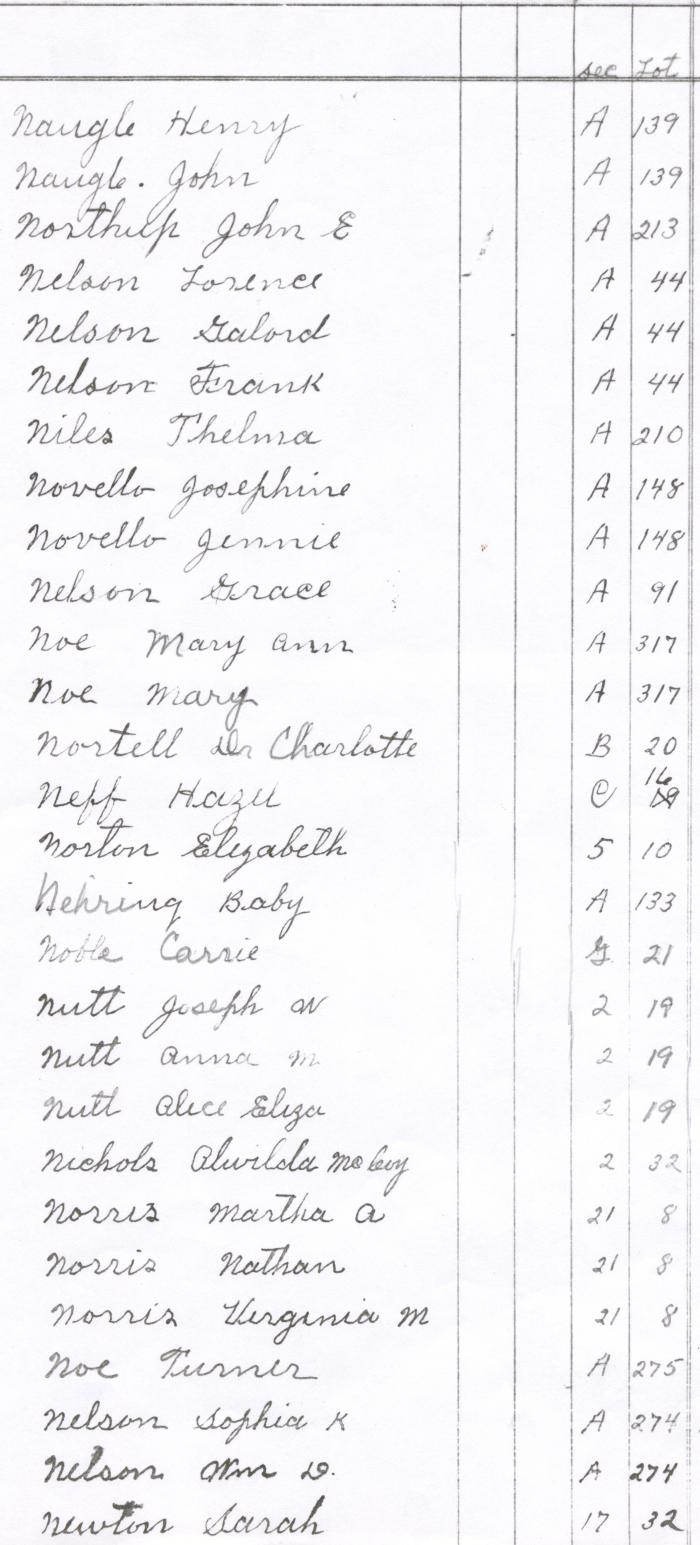 sec Lot
Naugle Henry A 139
Naugle. John A 139
Northup John E A 213
Nelson Lorence A 44
Nelson Galord A 44
Nelson Frank A 44
Niles Thelma A 210
Novello Josephine A 148
Novello Jennie A 148
Nelson Grace A 91
Noe Mary Ann A 317
Noe Mary A 317
Nortell Dr Charlotte B 20
Neff Hazel C 16
Norton Elizabeth 5 10
Nehring Baby A 133
Noble Carrie G 21
Nutt Joseph W 2 19
Nutt Anna M 2 19
Nutt Alice Eliza 2 19
Nichols Alwilda 2 32
Norris Martha A 21 8
Norris Nathan 21 8
Norris Virginia M 21 8
Noe Turner A 275
Nelson Sophia K A 274
Nelson Wm D. A 274
Newton Sarah 17 32